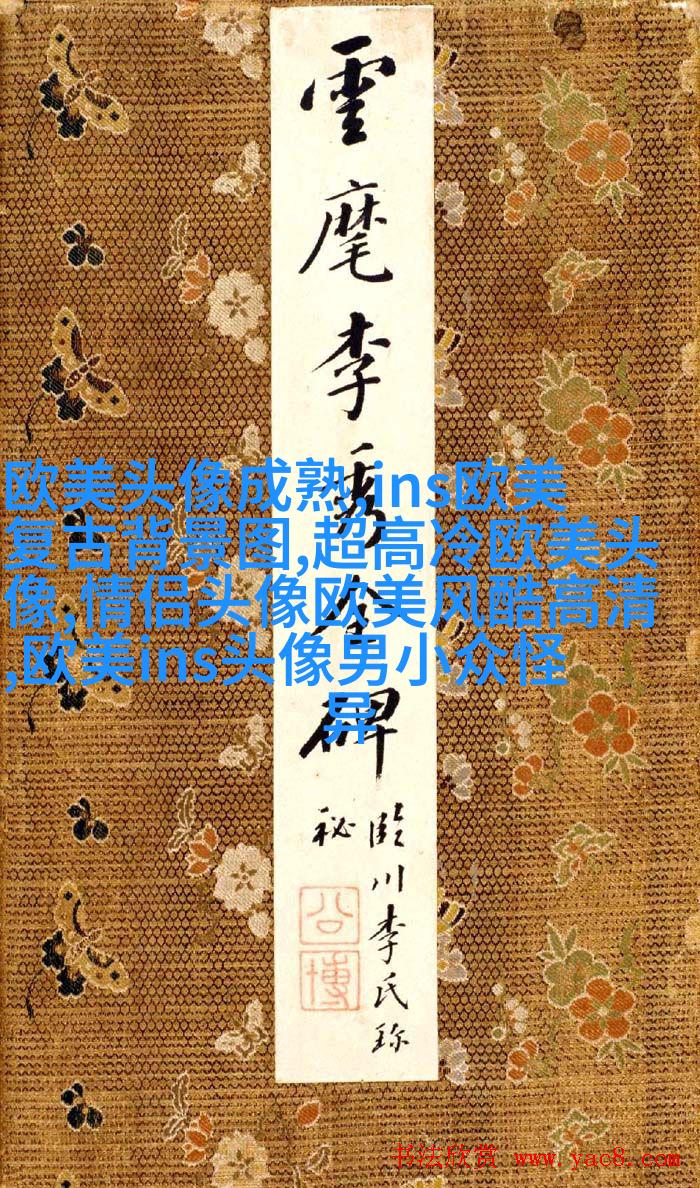 雲麾李秀全碑
臨川李氏珍
秘
公
博
欧美头像成熟,ins欧美
复古背景图,超高冷欧美头
像,情侣头像欧美风酷高清
,欧美ins头像男小众怪
异
书法欣赏 www.yac8.com